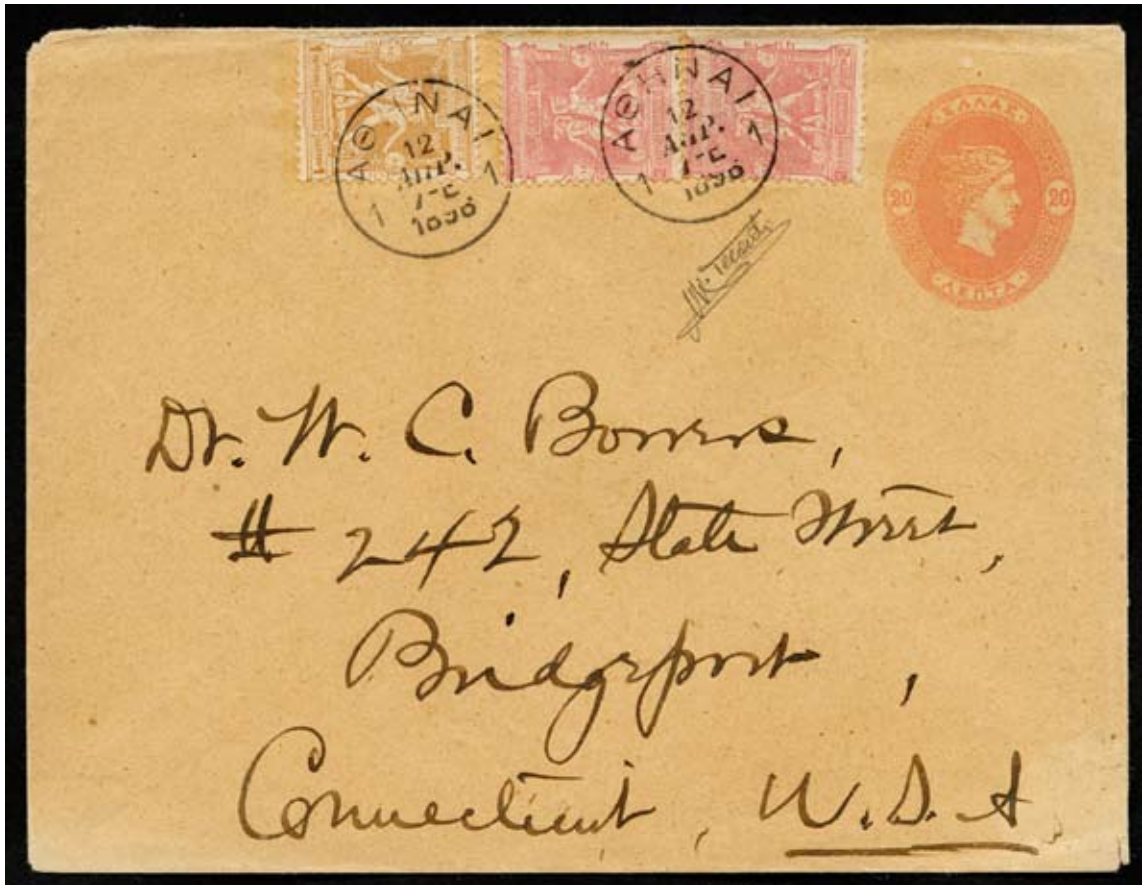 ΑΘΗΝΑΙ
1 1
12
ΑΠΡ.
1896
ΑΘΗΝΑΙ
1 1
12
ΑΠΡ.
1896
ΕΛΛΑΣ
20 20
ΛΕΠΤΑ
Dr. W. C. Bowers,
# 242, State Street,
Bridgeport,
Connecticut, U.S.A.